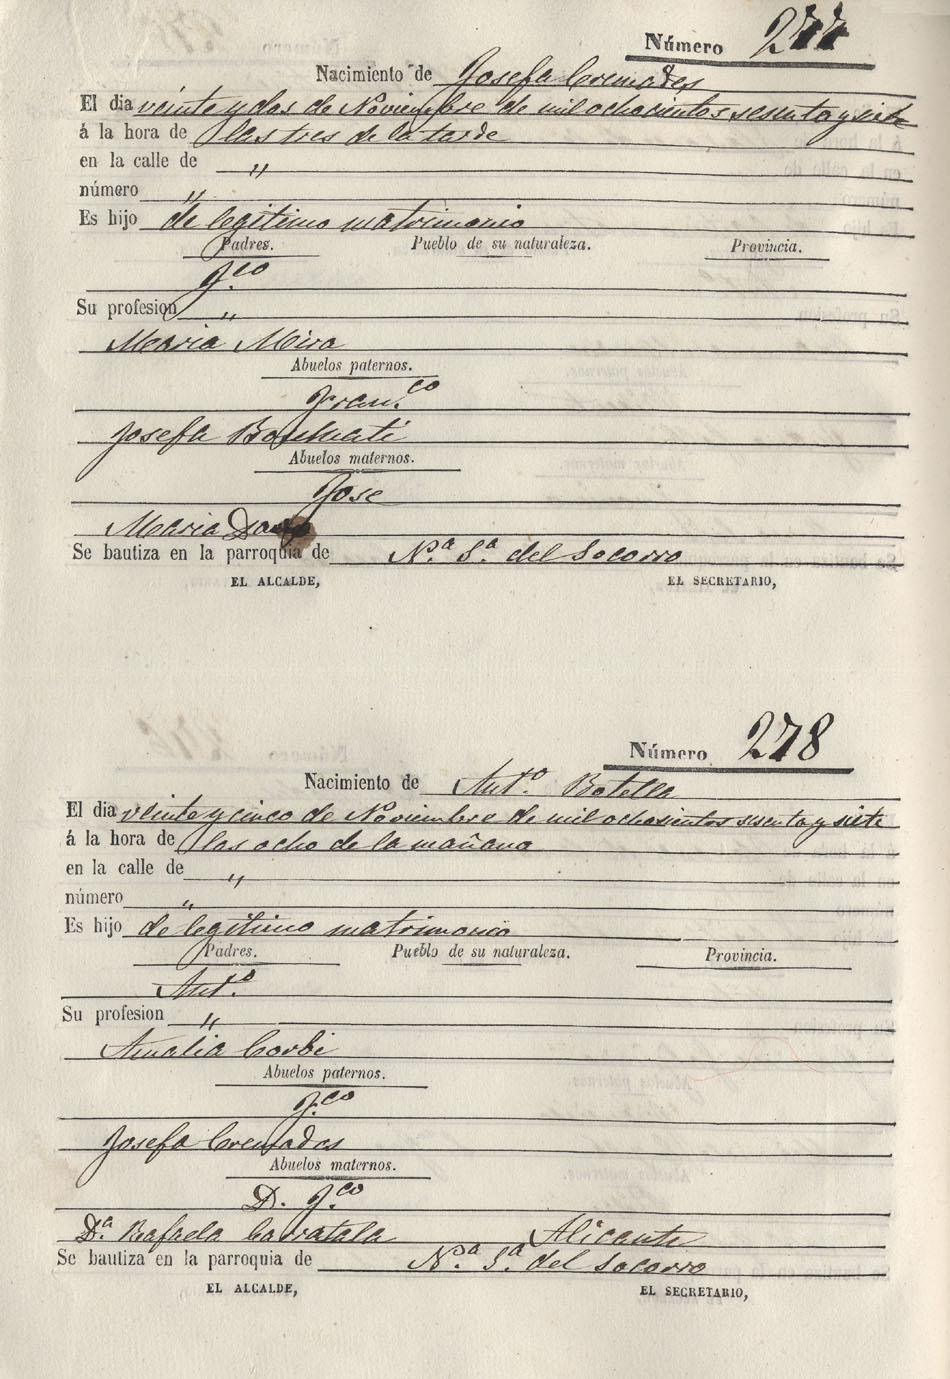 Número 277
Nacimiento de Josefa Cremades
El dia veinte y dos de Noviembre de mil ochocientos sesenta y siete
á la hora de las tres de la tarde
en la calle de "
número "
Es hijo de legitimo matrimonio
Padres. Pueblo de su naturaleza. Provincia.
F.co
Su profesion "
Maria Mira
Abuelos paternos.
Fran.co
Josefa Bonmati
Abuelos maternos.
Jose
Maria
Se bautiza en la parroquia de N.a S.a del Socorro
EL ALCALDE, EL SECRETARIO,
Número 278
Nacimiento de Ant.o Botella
El dia veinte y cinco de Noviembre de mil ochosientos sesenta y siete
á la hora de las ocho de la mañana
en la calle de "
número "
Es hijo de legitimo matrimonio
Padres. Pueblo de su naturaleza. Provincia.
Ant.o
Su profesion "
Amalia Corbi
Abuelos paternos.
F.co
Josefa Cremades
Abuelos maternos.
D. F.co
D.a Rafaela Carratala Alicante
Se bautiza en la parroquia de N.a S.a del Socorro
EL ALCALDE, EL SECRETARIO,